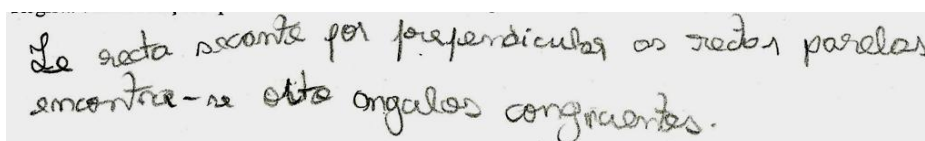 Se recta secante for prependicular as rectas parelas
encontra-se oito angulos congruentes.